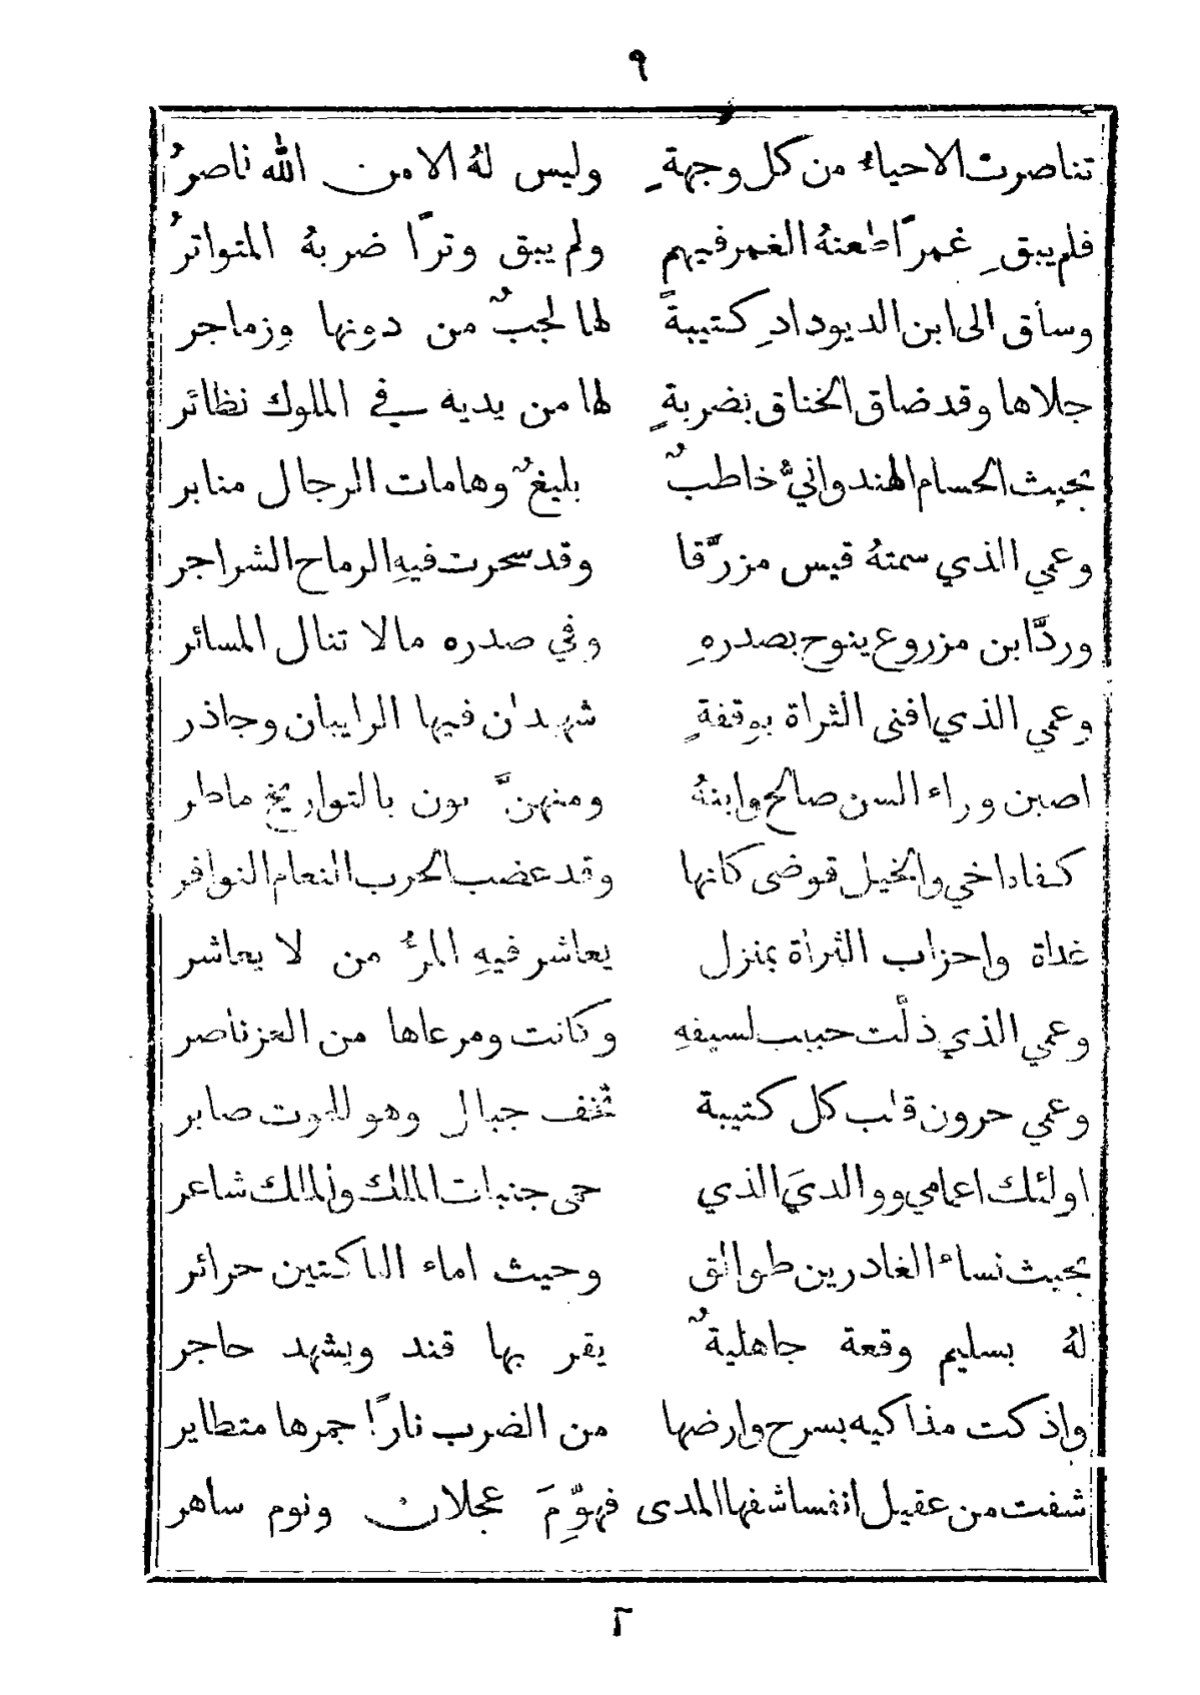 ٩
تناصرت الاحياء من كل وجهةٍ وليس لهُ الا من الله ناصرُ
فلم يبق غمرًا طعنهُ الغمر فيهم ولم يبق وترًا ضربهُ المتواترُ
وساق الى ابن الديودادِ كتيبةً لها لجبٌ من دونها وزماجر
جلاها وقد ضاق الخناق بضربةٍ لها من يديه في الملوك نظائر
بحيث الحسام الهندوانيُّ خاطبٌ بليغٌ وهامات الرجال منابر
وعمي الذي سمتهُ قيس مزرَّفا وقد سحرت فيهِ الرماح الشراجر
وردَّ ابن مزروع ينوح بصدرهِ وفي صدره مالا تنال المسائر
وعمي الذي افنى الثراة بوقفةٍ شهيدان فيها الرايبان وجاذر
اصبن وراء السن صالح وابنهُ ومنهنَّ نون بالتواريخ ماطر
كفاه اخي والخيل فوضى كانها وقد عضب الحرب النعام النوافر
غداة واحزاب الثراة بمنزل يعاشر فيهِ المرءُ من لا يعاشر
وعمي الذي ذلَّت حبيب لسيفهِ وكانت ومرعاها من العز ناصر
وعمي حرون قلب كل كتيبة تخف جبال وهو للموت صابر
اولئك اعمامي ووالديَ الذي حمى جنبات الملك والملك شاعر
بحيث نساء الغادرين طوالق وحيث اماء الناكثين حرائر
لهُ بسليم وقعة جاهليةٌ يقر بها فند ويشهد حاجر
واذكت مذاكيه بسرح وارضها من الضرب نارًا جمرها متطاير
شفت من عقيل انفسا شفها المدى فهوِّمَ عجلان ونوم ساهر
٢